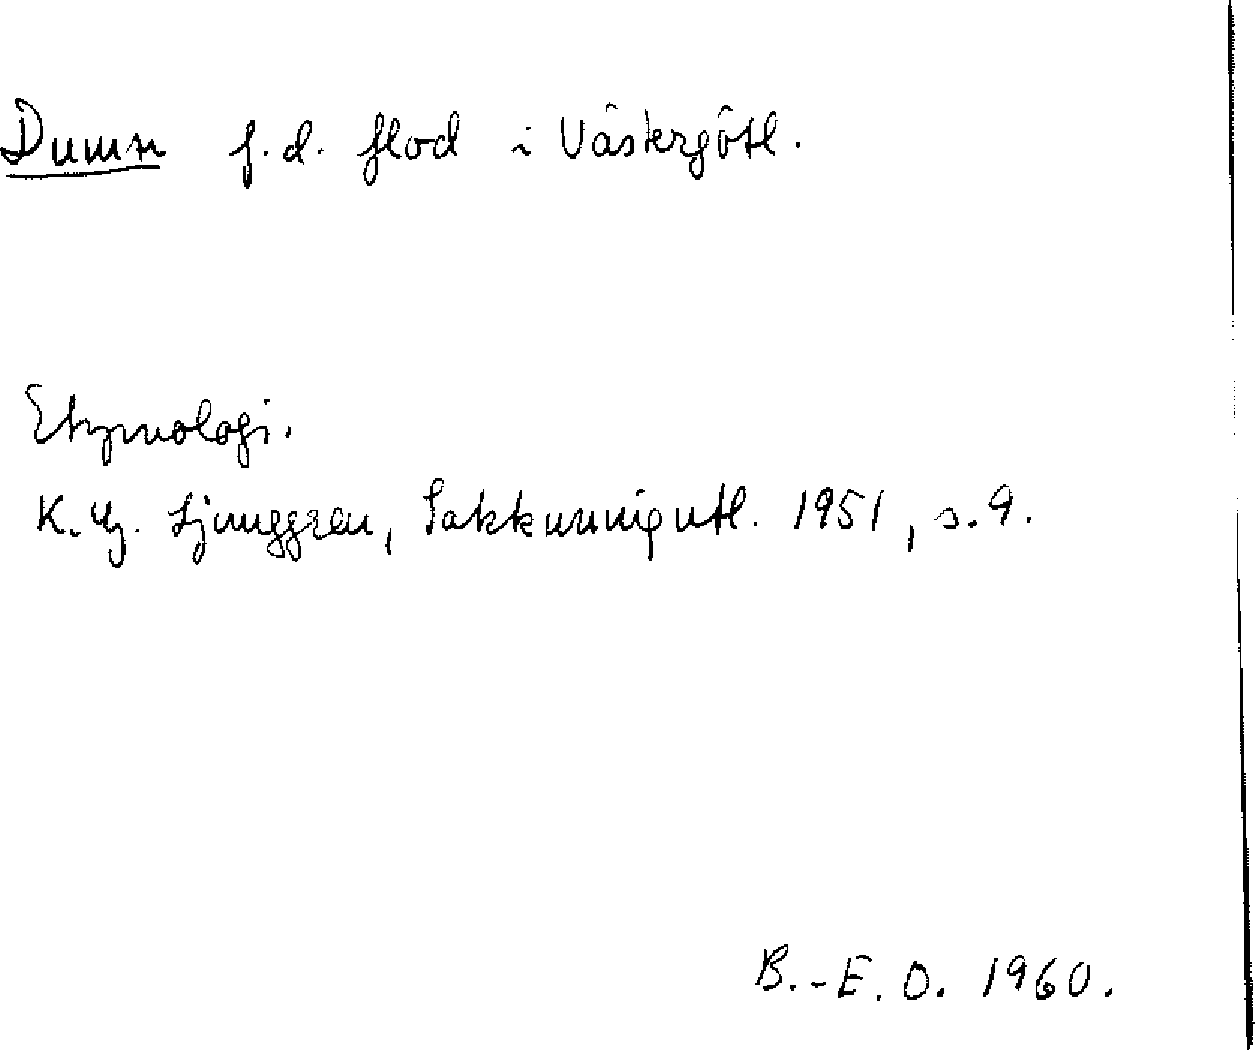 Dumn f.d. flod i Västergötl.
Etymologi.
K.G. Ljunggren, Sakkunnigutl. 1951, s. 9.
B.-E. O. 1960.